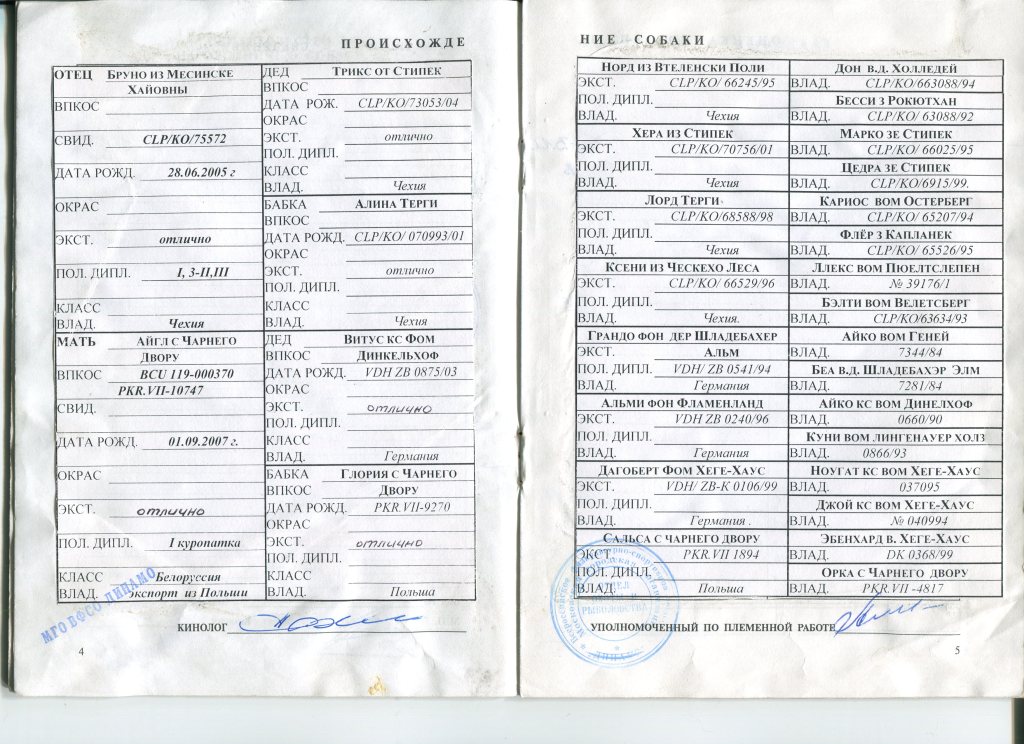 ПРОИСХОЖДЕ
ОТЕЦ Бруно из Месинске
Хайовны
ВПКОС
СВИД. CLP/KO/75572
ДАТА РОЖД. 28.06.2005 г
ОКРАС
ЭКСТ. отлично
ПОЛ. ДИПЛ. I, 3-II,III
КЛАСС
ВЛАД. Чехия
МАТЬ Айгл с Чарнего
Двору
ВПКОС BCU 119-000370
PKR.VII-10747
СВИД.
ДАТА РОЖД. 01.09.2007 г.
ОКРАС
ЭКСТ. отлично
ПОЛ. ДИПЛ. I куропатка
КЛАСС Белоруссия
ВЛАД. Экспорт из Польши
ДЕД Трикс от Стипек
ВПКОС
ДАТА РОЖ. CLP/KO/73053/04
ОКРАС
ЭКСТ. отлично
ПОЛ. ДИПЛ.
КЛАСС
ВЛАД. Чехия
БАБКА Алина Терги
ВПКОС
ДАТА РОЖД. CLP/KO/ 070993/01
ОКРАС
ЭКСТ. отлично
ПОЛ. ДИПЛ.
КЛАСС
ВЛАД. Чехия
ДЕД Витус кс Фом
ВПКОС Динкельхоф
ДАТА РОЖД. VDH ZB 0875/03
ОКРАС
ЭКСТ. отлично
ПОЛ. ДИПЛ.
КЛАСС
ВЛАД. Германия
БАБКА Глория с Чарнего
ВПКОС Двору
ДАТА РОЖД. PKR.VII-9270
ОКРАС
ЭКСТ. отлично
ПОЛ. ДИПЛ.
КЛАСС
ВЛАД. Польша
МГО ВФСО ДИНАМО
КИНОЛОГ
4
НИЕ СОБАКИ
Норд из Втеленски Поли
ЭКСТ. CLP/KO/ 66245/95
ПОЛ. ДИПЛ.
ВЛАД. Чехия
Хера из Стипек
ЭКСТ. CLP/KO/70756/01
ПОЛ. ДИПЛ.
ВЛАД. Чехия
Лорд Терги
ЭКСТ. CLP/KO/68588/98
ПОЛ. ДИПЛ.
ВЛАД. Чехия
Ксени из Ческехо Леса
ЭКСТ. CLP/KO/ 66529/96
ПОЛ. ДИПЛ.
ВЛАД. Чехия.
Грандо фон дер Шладебахер
ЭКСТ. Альм
ПОЛ. ДИПЛ. VDH/ ZB 0541/94
ВЛАД. Германия
Альми фон Фламенланд
ЭКСТ. VDH ZB 0240/96
ПОЛ. ДИПЛ.
ВЛАД. Германия
Дагоберт Фом Хеге-Хаус
ЭКСТ. VDH/ ZB-K 0106/99
ПОЛ. ДИПЛ.
ВЛАД. Германия .
Сальса с чарнего двору
ЭКСТ. PKR.VII 1894
ПОЛ. ДИПЛ.
ВЛАД. Польша
Дон в.д. Холледей
ВЛАД. CLP/KO/663088/94
Бесси з Рокютхан
ВЛАД. CLP/KO/ 63088/92
Марко зе Стипек
ВЛАД. CLP/KO/ 66025/95
Цедра зе Стипек
ВЛАД. CLP/KO/6915/99.
Кариос вом Остерберг
ВЛАД. CLP/KO/ 65207/94
Флёр з Капланек
ВЛАД. CLP/KO/ 65526/95
Ллекс вом Пюелтслепен
ВЛАД. № 39176/1
Бэлти вом Велетсберг
ВЛАД. CLP/KO/63634/93
Айко вом Геней
ВЛАД. 7344/84
Беа в.д. Шладебахэр Элм
ВЛАД. 7281/84
Айко кс вом Динелхоф
ВЛАД. 0660/90
Куни вом лингенауер холз
ВЛАД. 0866/93
Ноугат кс вом Хеге-Хаус
ВЛАД. 037095
Джой кс вом Хеге-Хаус
ВЛАД. № 040994
Эбенхард в. Хеге-Хаус
ВЛАД. DK 0368/99
Орка с Чарнего двору
ВЛАД. PKR.VII -4817
РЫБОЛОВСТВА
УПОЛНОМОЧЕННЫЙ ПО ПЛЕМЕННОЙ РАБОТЕ
5